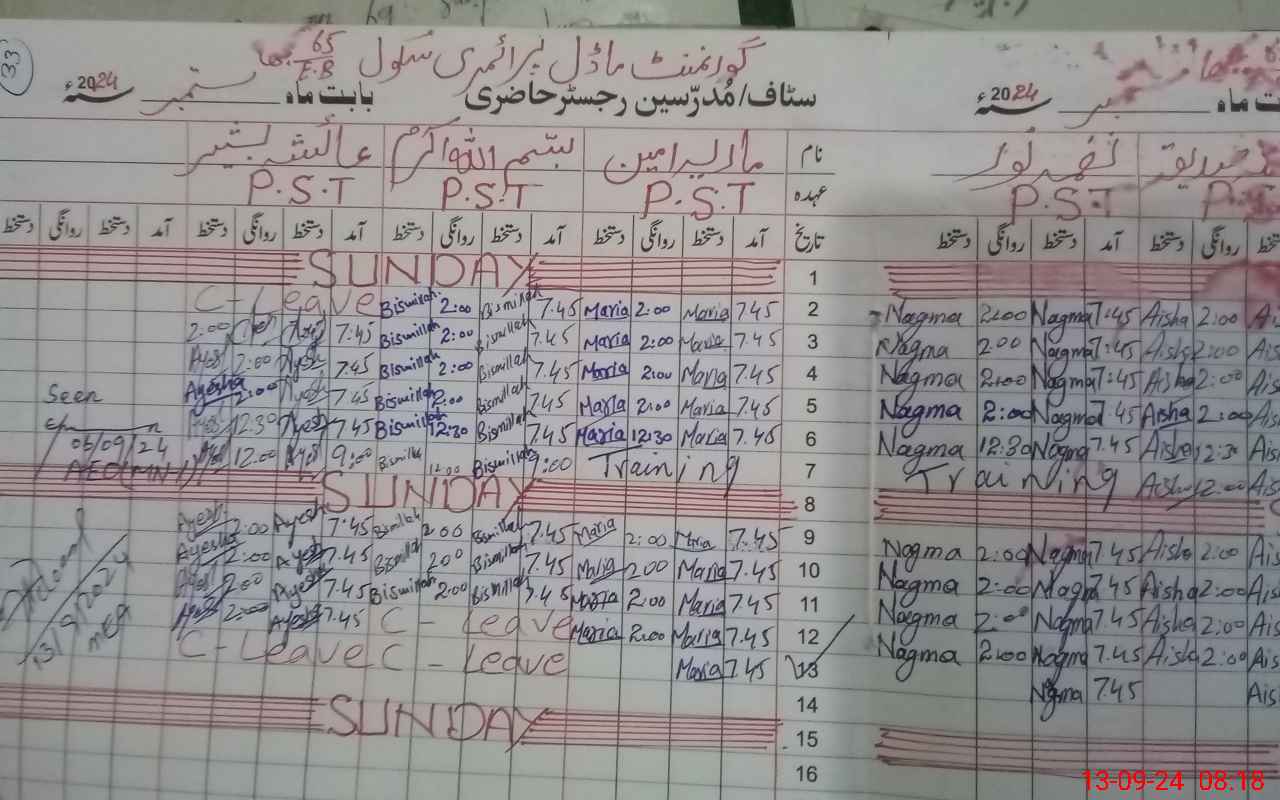 33
گورنمنٹ ماڈل پرائمری سکول 65/E.B
سٹاف/مُدرّسین رجسٹر حاضری بابت ماہ ستمبر سنہ 2024ء
نام ماریہ امین بسم اللہ اکرم عائشہ بشیر
عہدہ P.S.T P.S.T P.S.T
تاریخ آمد دستخط روانگی دستخط آمد دستخط روانگی دستخط آمد دستخط روانگی دستخط آمد دستخط روانگی دستخط
SUNDAY 1
C-Leave Bismillah 2:00 Bismillah 7.45 Maria 2:00 Maria 7.45 2
2:00 Ayesh 7:45 Bismillah 2:00 Bismillah 7.45 Maria 2:00 Maria 7.45 3
2:00 Ayesh 7.45 Bismillah 2:00 Bismillah 7.45 Maria 2:00 Maria 7.45 4
Ayesha 2:00 Ayesh 7.45 Bismillah 2:00 Bismillah 7.45 Maria 2:00 Maria 7.45 5
12:30 Ayesh 7.45 Bismillah 12:30 Bismillah 7.45 Maria 12:30 Maria 7.45 6
12:00 9:00 Bismillah 12:00 Bismillah 9:00 Training 7
SUNDAY 8
Ayesh 2:00 Ayesh 7.45 Bismillah 2:00 Bismillah 7.45 Maria 2:00 Maria 7.45 9
Ayesha 2:00 Ayesh 7.45 Bismillah 200 Bismillah 7.45 Maria 200 Maria 7.45 10
2:00 Ayesh 7.45 Bismillah 2:00 Bismillah 7.45 Maria 2:00 Maria 7.45 11
2:00 Ayesh 7.45 C-Leave Maria 2:00 Maria 7.45 12
C-Leave C-Leave Maria 7.45 13
14
SUNDAY 15
16
Seen
06/09/24
AEO (MN)
13/9/2024
MEA
سنہ 2024ء
نغمہ نور
P.S.T
آمد دستخط روانگی دستخط
Nagma 2:00 Nagma 7:45 Aisha 2:00
Nagma 200 Nagma 7:45 Aisha 2:00
Nagma 2:00 Nagma 7:45 Aisha 2:00
Nagma 2:00 Nagma 7.45 Aisha 2:00
Nagma 12:30 Nagma 7.45 Aisha 12:30
Training Aisha 12:00
Nagma 2:00 Nagma 7.45 Aisha 2:00
Nagma 2:00 Nagma 7.45 Aisha 2:00
Nagma 2:00 Nagma 7.45 Aisha 2:00
Nagma 2:00 Nagma 7.45 Aisha 2:00
Nagma 7.45
13-09-24 08:18